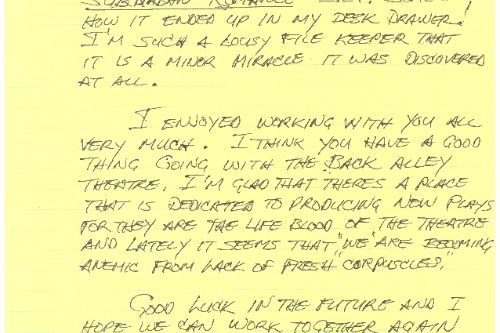 SUBURBAN ROMANCE
HOW IT ENDED UP IN MY DESK DRAWER!
I'M SUCH A LOUSY FILE KEEPER THAT
IT IS A MINOR MIRACLE IT WAS DISCOVERED
AT ALL.
I ENJOYED WORKING WITH YOU ALL
VERY MUCH. I THINK YOU HAVE A GOOD
THING GOING WITH THE BACK ALLEY
THEATRE. I'M GLAD THAT THERES A PLACE
THAT IS DEDICATED TO PRODUCING NEW PLAYS
FOR THEY ARE THE LIFE BLOOD OF THE THEATRE
AND LATELY IT SEEMS THAT "WE" ARE BECOMING
ANEMIC FROM LACK OF FRESH "CORPUSCLES."
GOOD LUCK IN THE FUTURE AND I
HOPE WE CAN WORK TOGETHER AGAIN